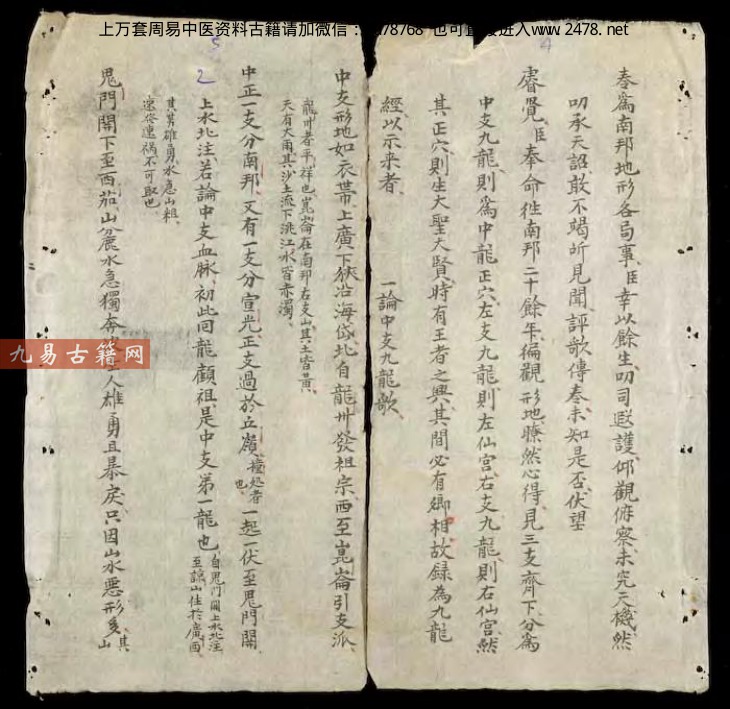 上万套周易中医资料古籍请加微信:  78768 也可 接进入www.2478.net
奏爲南邦地形各局事、臣幸以餘生、叨司 護、仰觀俯察、未究天機、然
叨承天詔、敢不竭所見聞、評歌傳奏、未知是否、伏望
睿覽、臣奉命往南邦二十餘年、徧觀形地、瞭然心得、見三支齊下、分爲
中支九龍、則爲中龍正穴、左支九龍、則左仙宮、右支九龍、則右仙宮、然
其正穴、則生大聖大賢、時有王者之興、其間必有卿相、故録為九龍
經、以示來者、
一論中支九龍歌、
中支形地如衣帶、上廣下狹沿海岱、北自龍卅發祖宗、西至崑崙引支派、
龍卅者平祥也、崑崙在南邦右支山、其土皆黃、
天有大雨、其沙土流下洮江、水皆赤濁、
中正一支分南邦、又有一支分宣光、正支過於五嶺、 者也、一起一伏至鬼門關、
2
上水北注、若論中支血脉、初此回龍顧祖、是中支第一龍也、自鬼門關上水北注
至 山住於廣西、
其 雄勇、水急山粗、
速發速禍、不可取也
鬼門關下至西茄、山麄水急獨奔 人雄勇且暴戾、只因山水惡形多、其山
九易古籍网